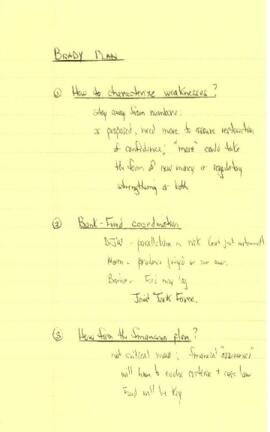 BRADY PLAN
① How to characterize weaknesses?
stay away from numbers.
as proposed, need more to assure restoration
of confidence; "more" could take
the form of new money or regulatory
strengthening or both
② Bank-Fund coordination
DJW - parallelism is not
Moeen - prudence
Fund may lag
Joint Task Force.
③ How firm the financing plan?
not critical mass; financial "assurances"
will have to evolve criteria + case law
Fund will be key